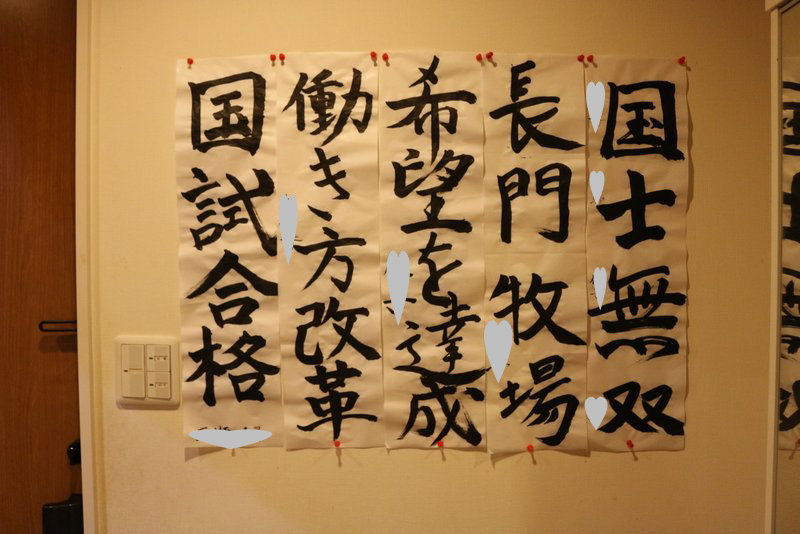 国士無双
長門牧場
希望を達成
働き方改革
国試合格